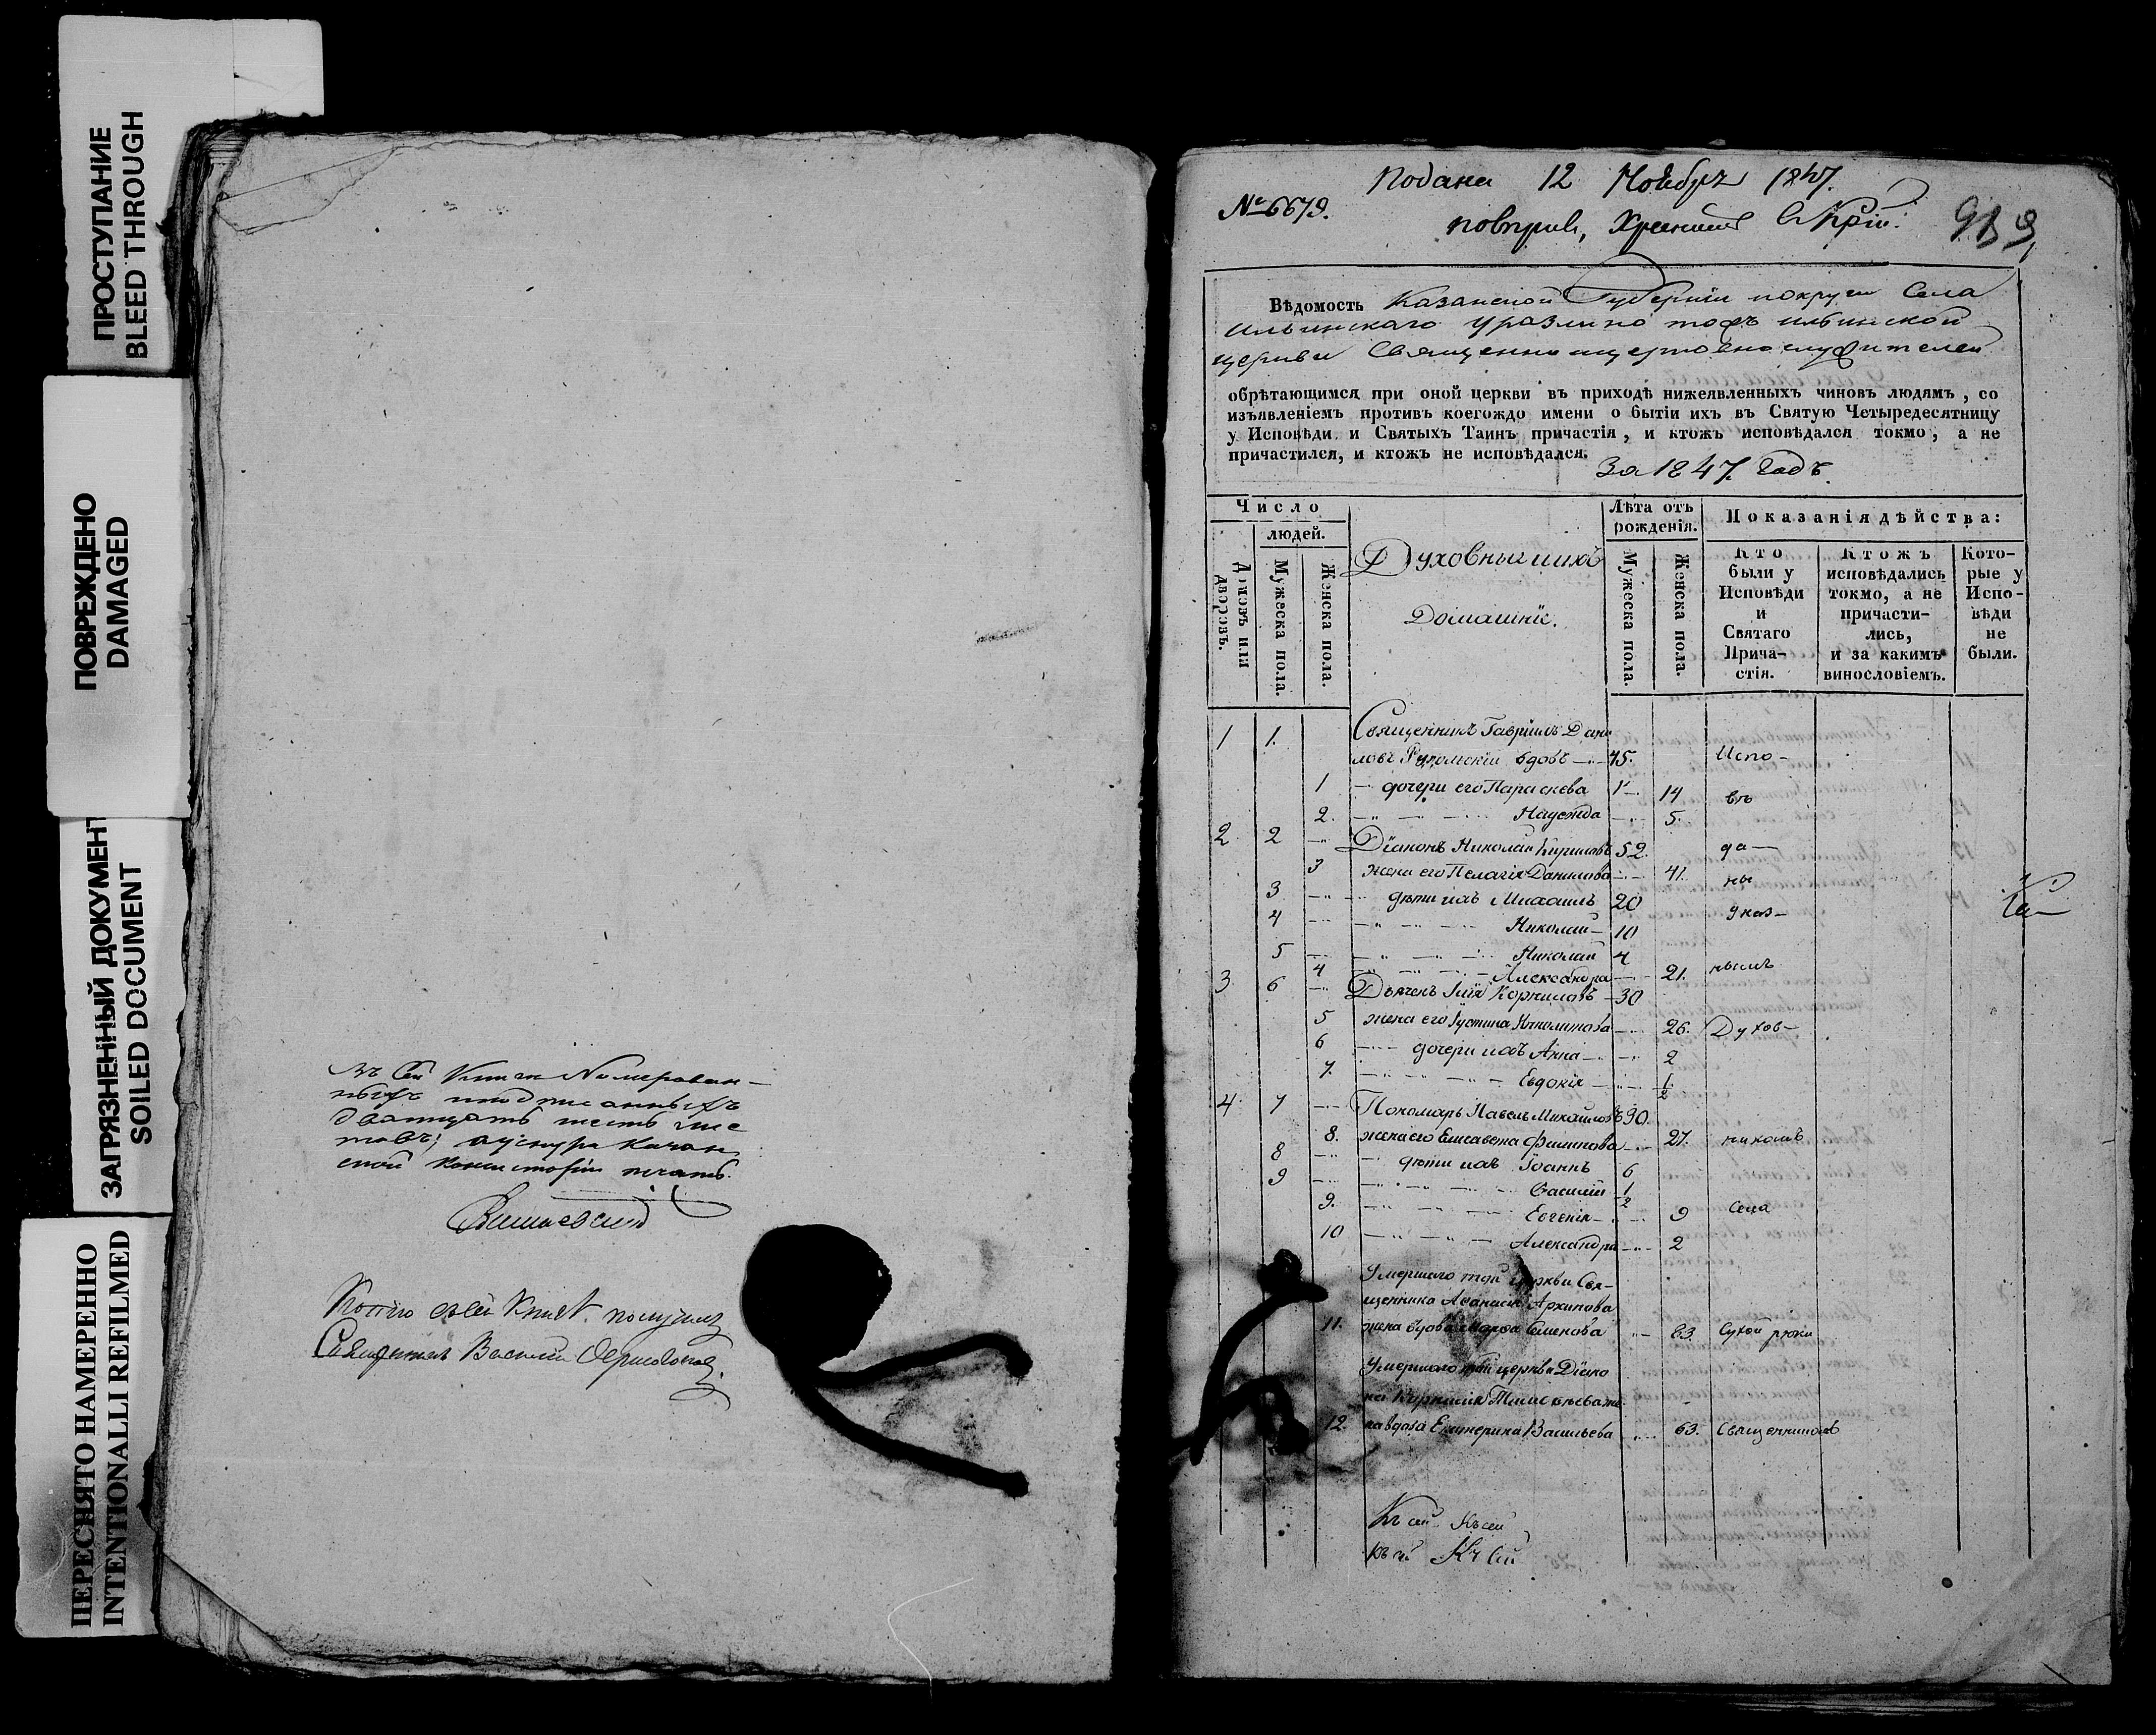 ПРОСТУПАНИЕ
BLEED THROUGH
ПОВРЕЖДЕНО
DAMAGED
ЗАГРЯЗНЕННЫЙ ДОКУМЕНТ
SOILED DOCUMENT
ПЕРЕСНЯТО НАМЕРЕННО
INTENTIONALLI REFILMED
Въ сей Книгѣ Номерован-
дватцать шесть лис
товъ;
Священникъ Василій
Подана 12 Ноября 1847.
№ 6679.
Вѣдомость Казанской Губерніи и округи Села
Ильинскаго Уразлино тожъ Ильинской
церкви Священноицерковнослужителей
обрѣтающимся при оной церкви въ приходѣ нижеявленныхъ чиновъ людямъ, со
изъявленіемъ противъ коегождо имени о бытіи ихъ въ Святую Четыредесятницу
у Исповѣди и Святыхъ Таинъ причастія, и ктожъ исповѣдался токмо, а не
причастился, и ктожъ не исповѣдался.
За 1847. Годъ.
Число
людей.
Домовъ или дворовъ.
Мужеска пола.
Женска пола.
Духовныи ихъ
Домашніе.
Лѣта отъ рожденія.
Мужеска пола.
Женска пола.
Показанія дѣйства:
Кто были у Исповѣди и Святаго Прича-стія.
Ктожъ исповѣдались токмо, а не причасти-лись, и за какимъ винословіемъ.
Кото-рые у Испо-вѣди не были.
1 1. Священникъ Гавріилъ Дани
ловъ вдовъ 45. Испо-
1 дочери его Параскева 14 вѣ
2. Надежда 5.
2 2 Діаконъ Николай Кириловъ 52. да
3 жена его Пелагія Данилова 41. ны
3 дѣти ихъ Михаилъ 20 указ-
4 Николай 10
5 Николай 4
4 Александра 21. нымъ
3 6 Дьячекъ Корниловъ 30
5 жена его Іустина 26. Духов-
6 дочери ихъ Анна 2
7. Евдокія 1/2
4 7 Пономарь Павелъ Михайловъ 30.
8. жена его Елисавета Филипова 27. никомъ
8 дѣти ихъ Іоаннъ 6
9 Василій 1/2
9. Евгенія 9 Села
10 Александра 2
Умершаго той церкви Свя-
щенника Аѳанасія Архипова
11. жена вдова Марѳа Семенова 63. Сухой рѣки
Умершаго той церкви Діако
12. на вдова Екатерина Васильева 63. Священникомъ
Къ сей Къ сей
Къ сей Къ сей